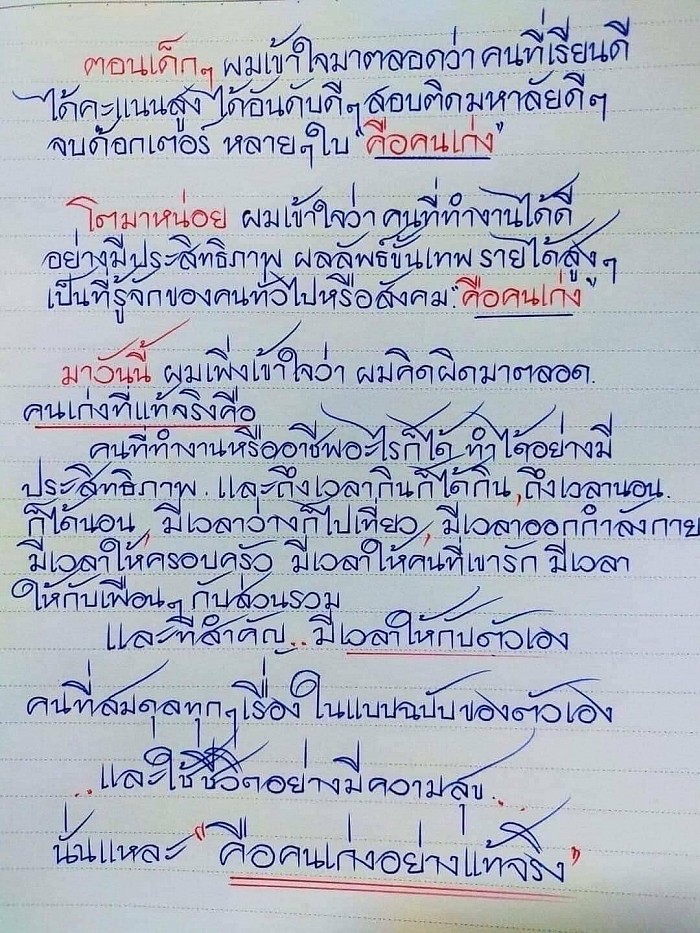 ตอนเด็กๆ ผมเข้าใจมาตลอดว่า คนที่เรียนดี
ได้คะแนนสูง ได้อันดับดีๆ สอบติดมหาลัยดีๆ
จบด๊อกเตอร์ หลายๆใบ "คือคนเก่ง"
โตมาหน่อย ผมเข้าใจว่า คนที่ทำงานได้ดี
อย่างมีประสิทธิภาพ ผลลัพธ์ขั้นเทพ รายได้สูงๆ
เป็นที่รู้จักของคนทั่วไปหรือสังคม "คือคนเก่ง"
มาวันนี้ ผมเพิ่งเข้าใจว่า ผมคิดผิดมาตลอด.
คนเก่งที่แท้จริงคือ
คนที่ทำงานหรืออาชีพอะไรก็ได้ ทำได้อย่างมี
ประสิทธิภาพ. และถึงเวลากินก็ได้กิน, ถึงเวลานอน.
ก็ได้นอน, มีเวลาว่างก็ไปเที่ยว, มีเวลาออกกำลังกาย
มีเวลาให้ครอบครัว มีเวลาให้คนที่เขารัก มีเวลา
ให้กับเพื่อนๆ กับส่วนรวม
และที่สำคัญ.. มีเวลาให้กับตัวเอง
คนที่สมดุลทุกๆเรื่อง ในแบบฉบับของตัวเอง
..และใช้ชีวิตอย่างมีความสุข...
นั่นแหละ "คือคนเก่งอย่างแท้จริง"